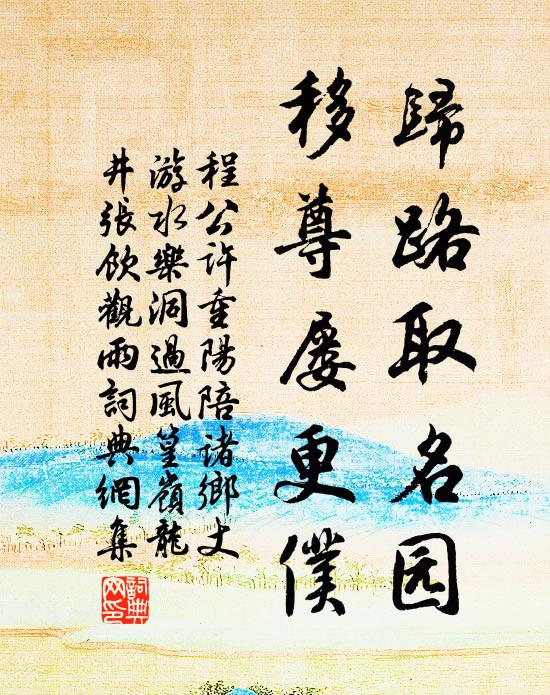 歸路取名园
移尊屡更僕
程公许重陽陪诸鄉丈
游水樂洞過風篁嶺龍
井張飲觀雨詞典網集
詞典
网印